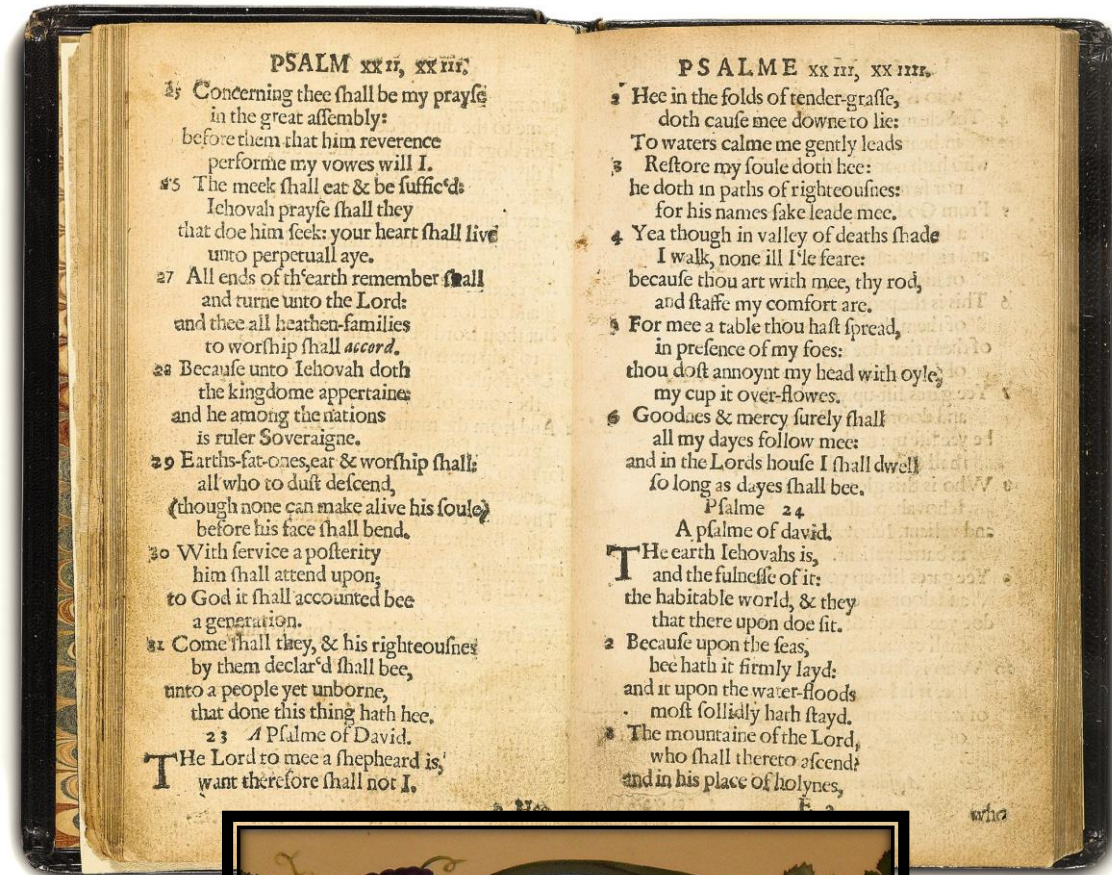 PSALM xxii, xxiii.
25 Concerning thee ſhall be my prayſe
in the great aſſembly:
before them that him reverence
performe my vowes will I.
25 The meek ſhall eat & be ſuffic'd:
Iehovah prayſe ſhall they
that doe him ſeek: your heart ſhall live
unto perpetuall aye.
27 All ends of th'earth remember ſhall
and turne unto the Lord:
and thee all heathen-families
to worſhip ſhall accord.
28 Becauſe unto Iehovah doth
the kingdome appertaine:
and he among the nations
is ruler Soveraigne.
29 Earths-fat-ones, eat & worſhip ſhall:
all who to duſt deſcend,
(though none can make alive his ſoule)
before his face ſhall bend.
30 With ſervice a poſterity
him ſhall attend upon;
to God it ſhall accounted bee
a generation.
31 Come ſhall they, & his righteouſnes
by them declar'd ſhall bee,
unto a people yet unborne,
that done this thing hath hee.
23 A Pſalme of David.
THe Lord to mee a ſhepheard is,
want therefore ſhall not I.
2 Hee
PSALME xxiii, xxiiii.
2 Hee in the folds of tender-graſſe,
doth cauſe mee downe to lie:
To waters calme me gently leads
3 Reſtore my ſoule doth hee:
he doth in paths of righteouſnes:
for his names ſake leade mee.
4 Yea though in valley of deaths ſhade
I walk, none ill I'le feare:
becauſe thou art with mee, thy rod,
and ſtaffe my comfort are.
5 For mee a table thou haſt ſpread,
in preſence of my foes:
thou doſt annoynt my head with oyle,
my cup it over-flowes.
6 Goodnes & mercy ſurely ſhall
all my dayes follow mee:
and in the Lords houſe I ſhall dwell
ſo long as dayes ſhall bee.
Pſalme 24
A pſalme of david.
THe earth Iehovahs is,
and the fulneſſe of it:
the habitable world, & they
that there upon doe ſit.
2 Becauſe upon the ſeas,
hee hath it firmly layd:
and it upon the water-floods
moſt ſollidly hath ſtayd.
3 The mountaine of the Lord,
who ſhall thereto aſcend?
and in his place of holynes,
E 2
who